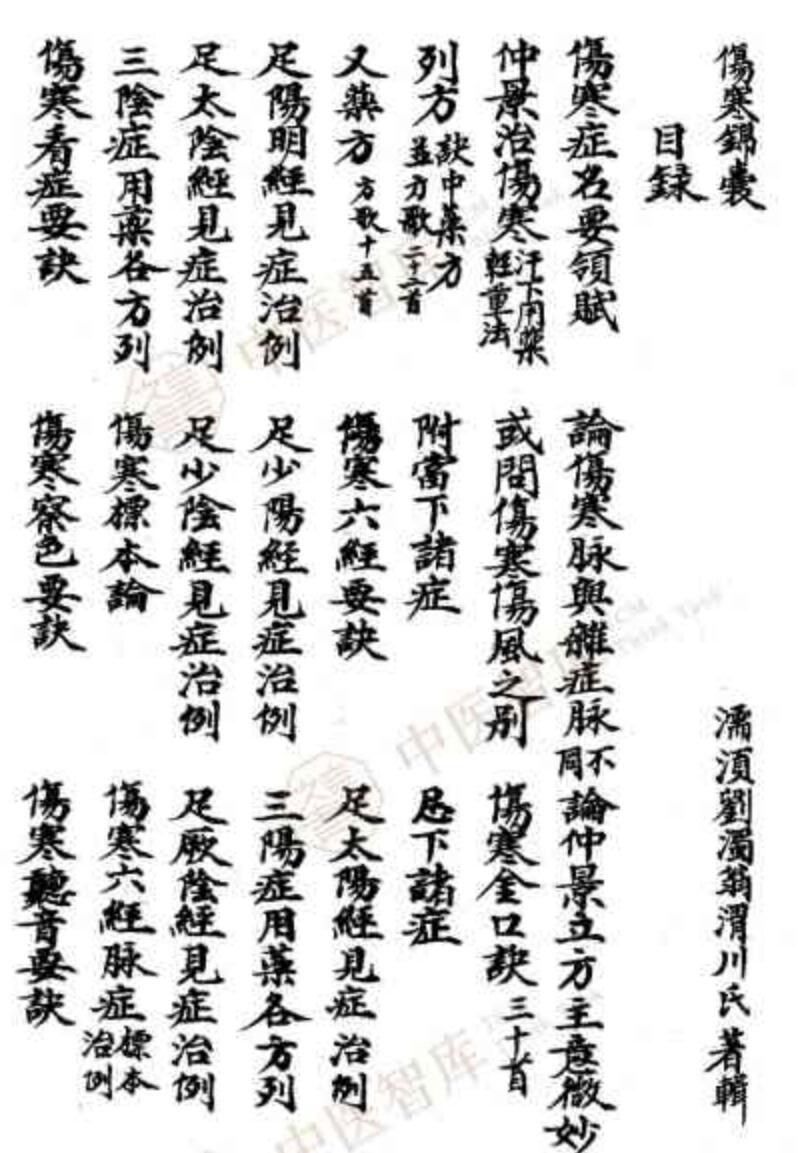 傷寒錦囊
目録
濡湏劉濁翁渭川氏著輯
傷寒症名要領賦 論傷寒脉與雜症脉不同 論仲景立方主意微妙
仲景治傷寒汗下用藥輕重法 或問傷寒傷風之別 傷寒金口訣三十首
列方訣中藥方並方歌二十二首 附當下諸症 忌下諸症
又藥方方歌十五首 傷寒六經要訣 足太陽經見症治例
足陽明經見症治例 足少陽經見症治例 三陽症用藥各方列
足太陰經見症治例 足少陰經見症治例 足厥陰經見症治例
三陰症用藥各方列 傷寒標本論 傷寒六經脉症標本治例
傷寒看症要訣 傷寒察色要訣 傷寒聽音要訣